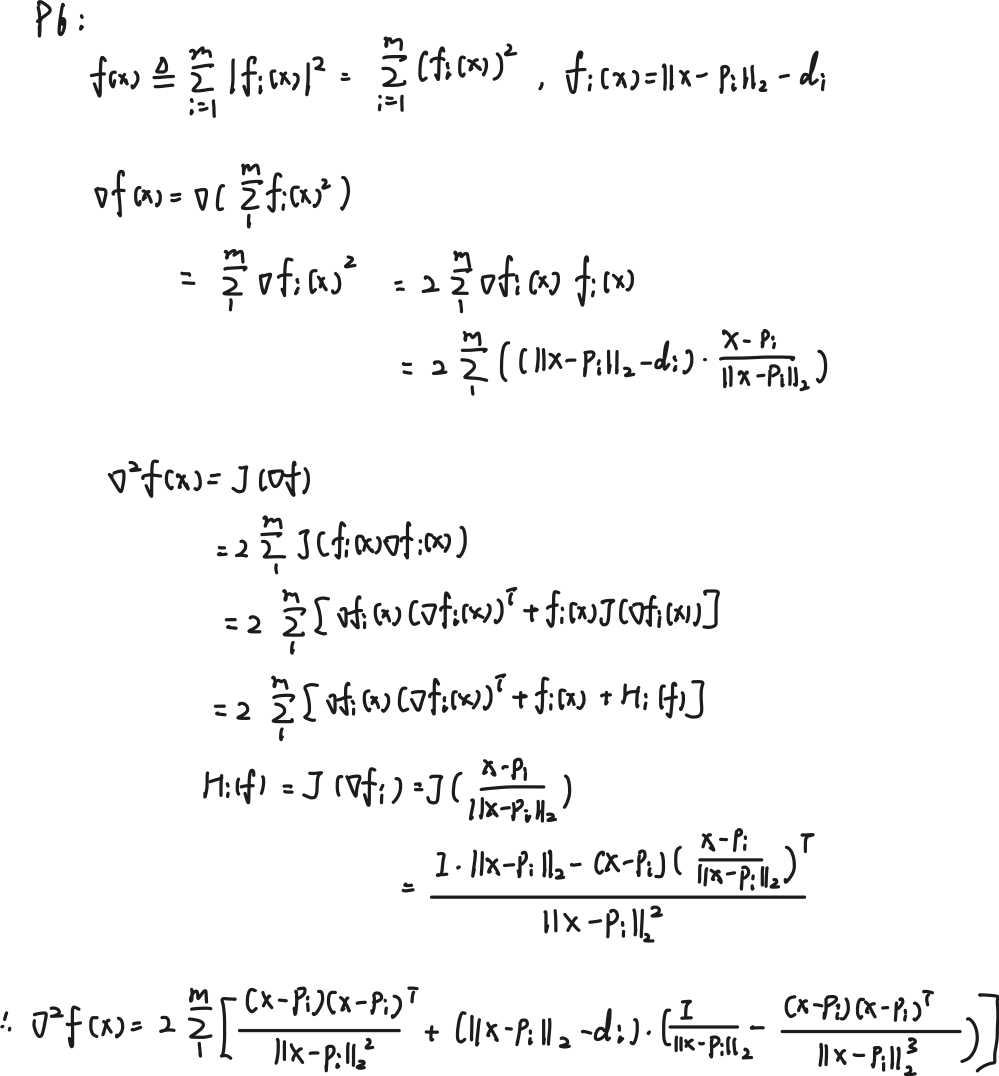 P6:
f(x) ≜ ∑_{i=1}^{m} |f_i(x)|^2 = ∑_{i=1}^{m} (f_i(x))^2 , f_i(x) = ||x - p_i||_2 - d_i
∇f(x) = ∇( ∑_{1}^{m} f_i(x)^2 )
= ∑_{1}^{m} ∇f_i(x)^2 = 2 ∑_{1}^{m} ∇f_i(x) f_i(x)
= 2 ∑_{1}^{m} ( (||x - p_i||_2 - d_i) · \frac{x - p_i}{||x - p_i||_2} )
∇^2 f(x) = J(∇f)
= 2 ∑_{1}^{m} J(f_i(x)∇f_i(x))
= 2 ∑_{1}^{m} [ ∇f_i(x)(∇f_i(x))^T + f_i(x)J(∇f_i(x)) ]
= 2 ∑_{1}^{m} [ ∇f_i(x)(∇f_i(x))^T + f_i(x) + H_i(f) ]
H_i(f) = J(∇f_i) = J( \frac{x - p_i}{||x - p_i||_2} )
= \frac{I · ||x - p_i||_2 - (x - p_i)( \frac{x - p_i}{||x - p_i||_2} )^T}{||x - p_i||_2^2}
∴ ∇^2 f(x) = 2 ∑_{1}^{m} [ \frac{(x - p_i)(x - p_i)^T}{||x - p_i||_2^2} + (||x - p_i||_2 - d_i) · ( \frac{I}{||x - p_i||_2} - \frac{(x - p_i)(x - p_i)^T}{||x - p_i||_2^3} ) ]